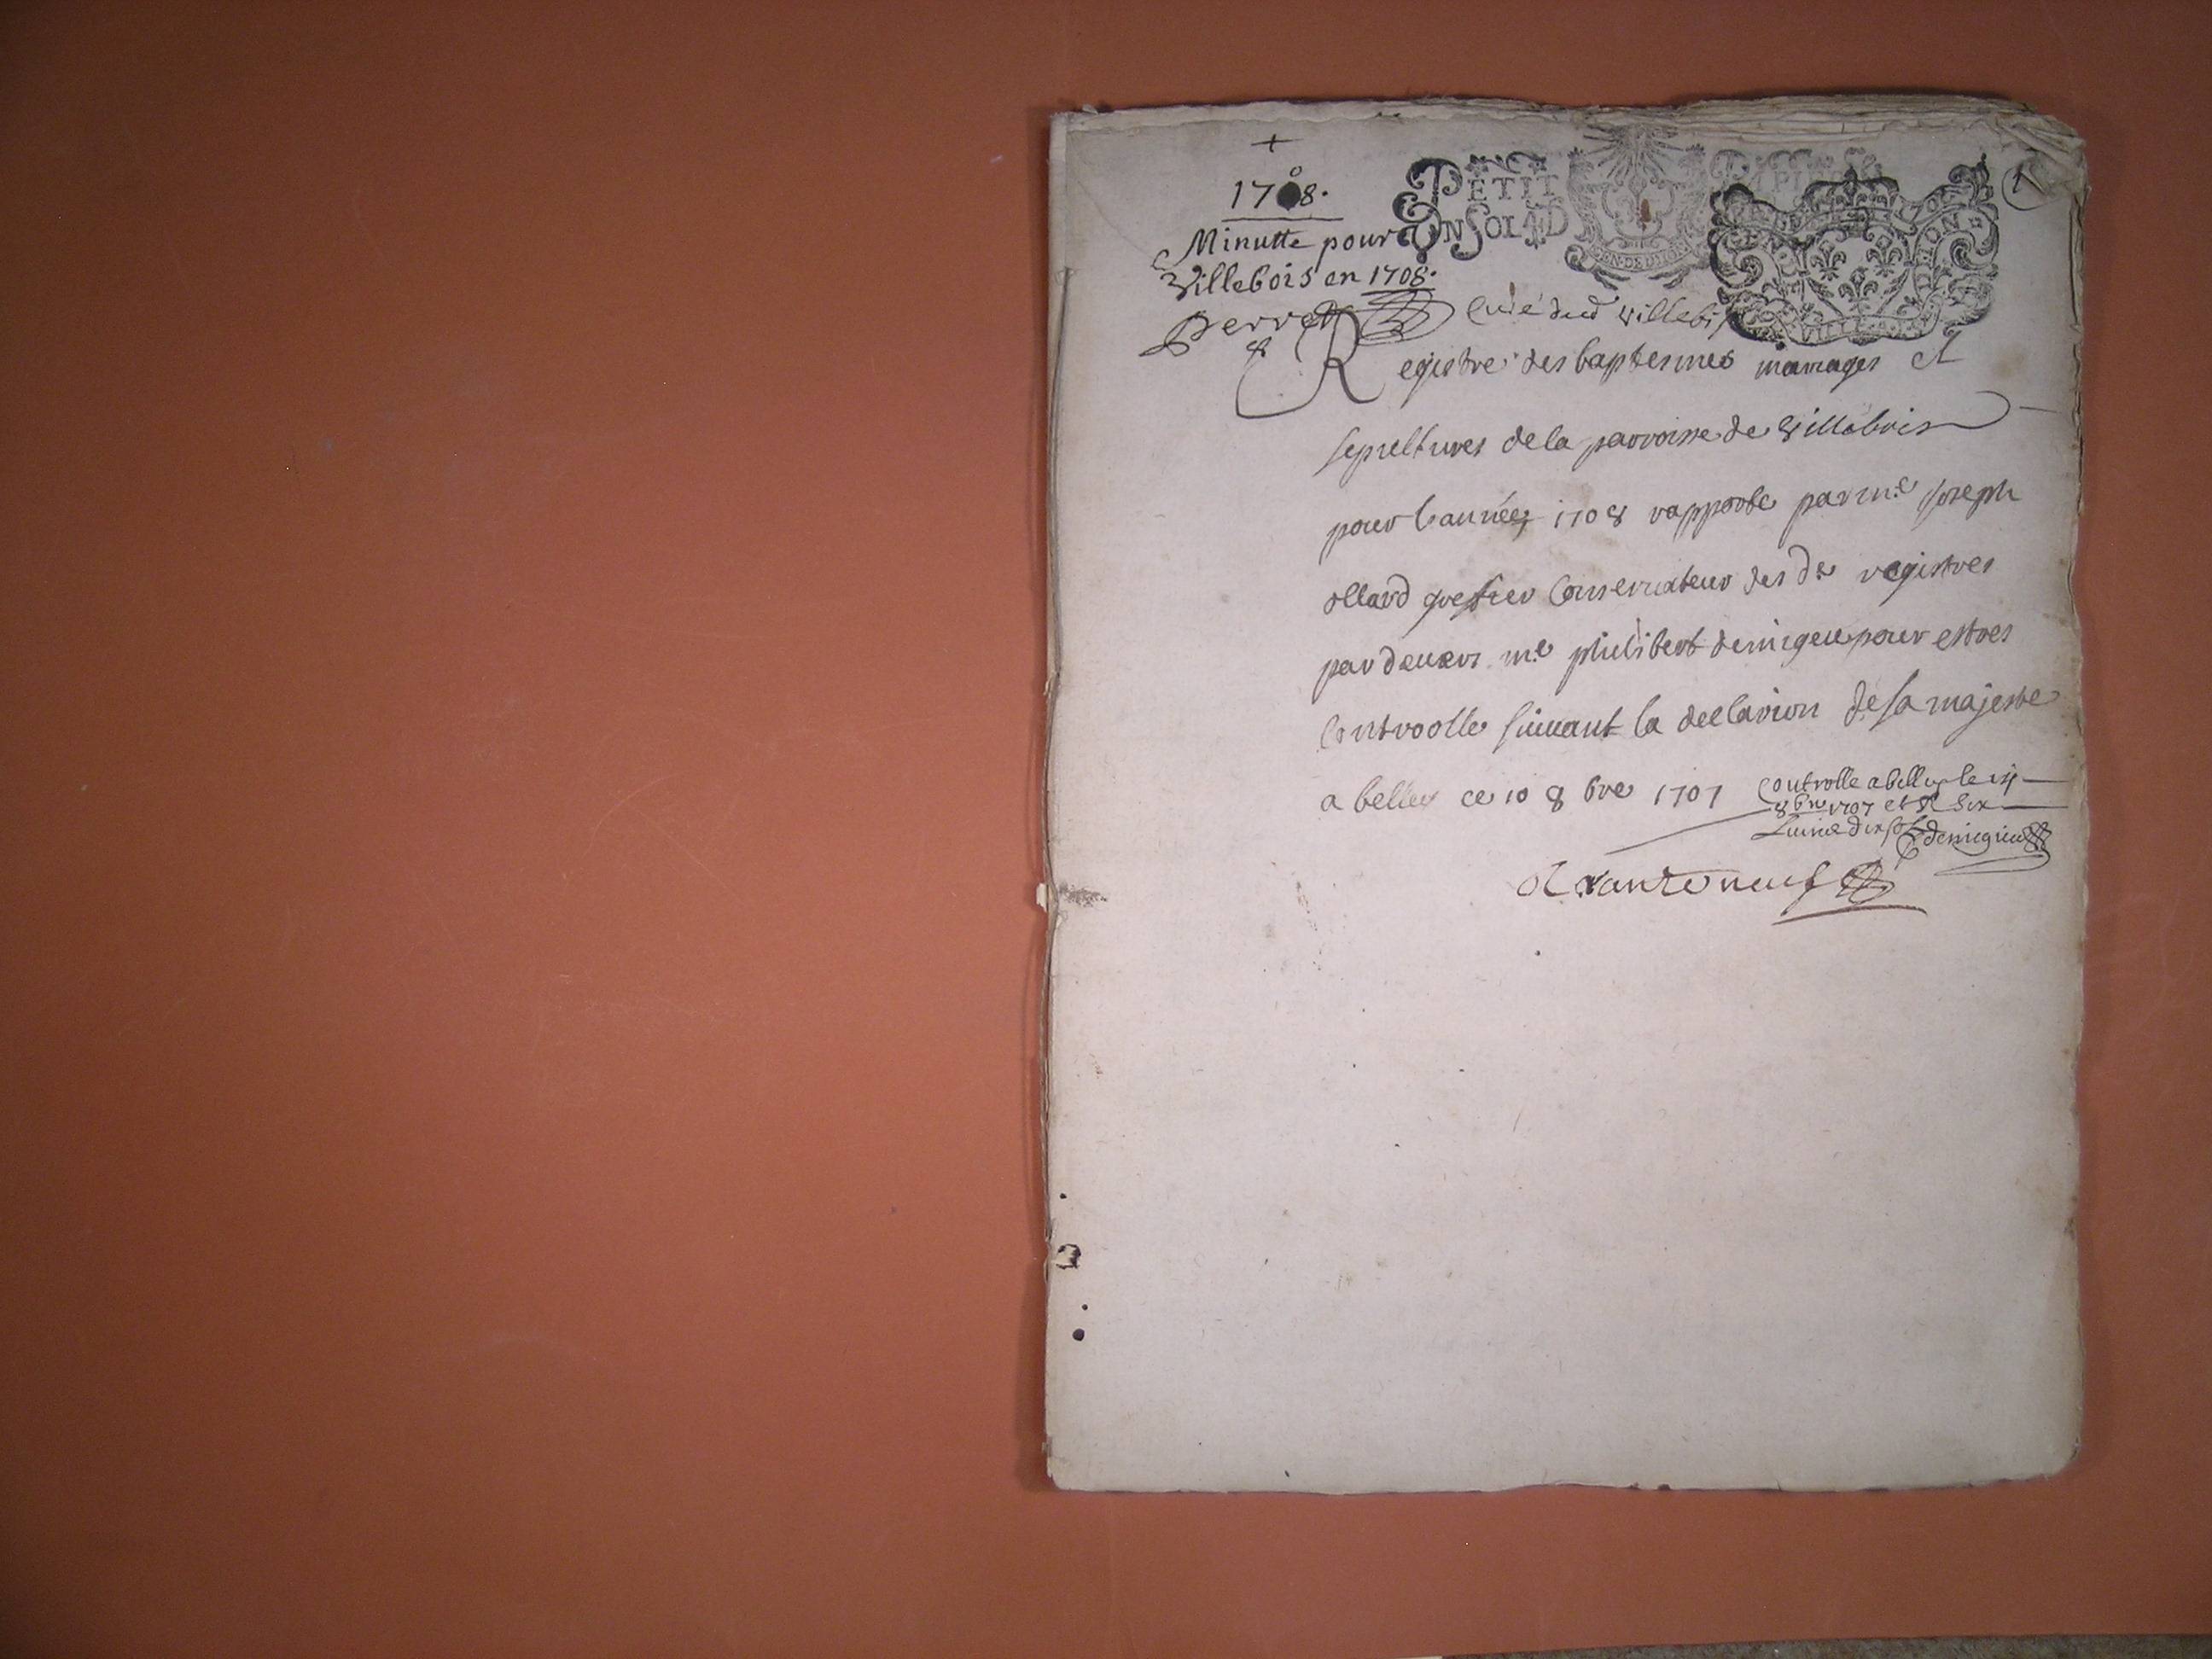 +
1708.
Minutte pour
Villebois en 1708.
Perret Curé dud Villebois
PETIT PAPIER
UN SOL 4 D
GEN. DE DIION
1
Registre des baptesmes mariages et
sepultures de la parroisse de Villebois
pour l'année 1708 rapporte par me Joseph
ollard greffier Conservateur des ds registres
par devers me philibert demigieu pour estres
Controolle suivant la declaraon de sa majeste
a belley ce 10 8bre 1707
Controlle a belley le
8bre 1707 et
demigieu